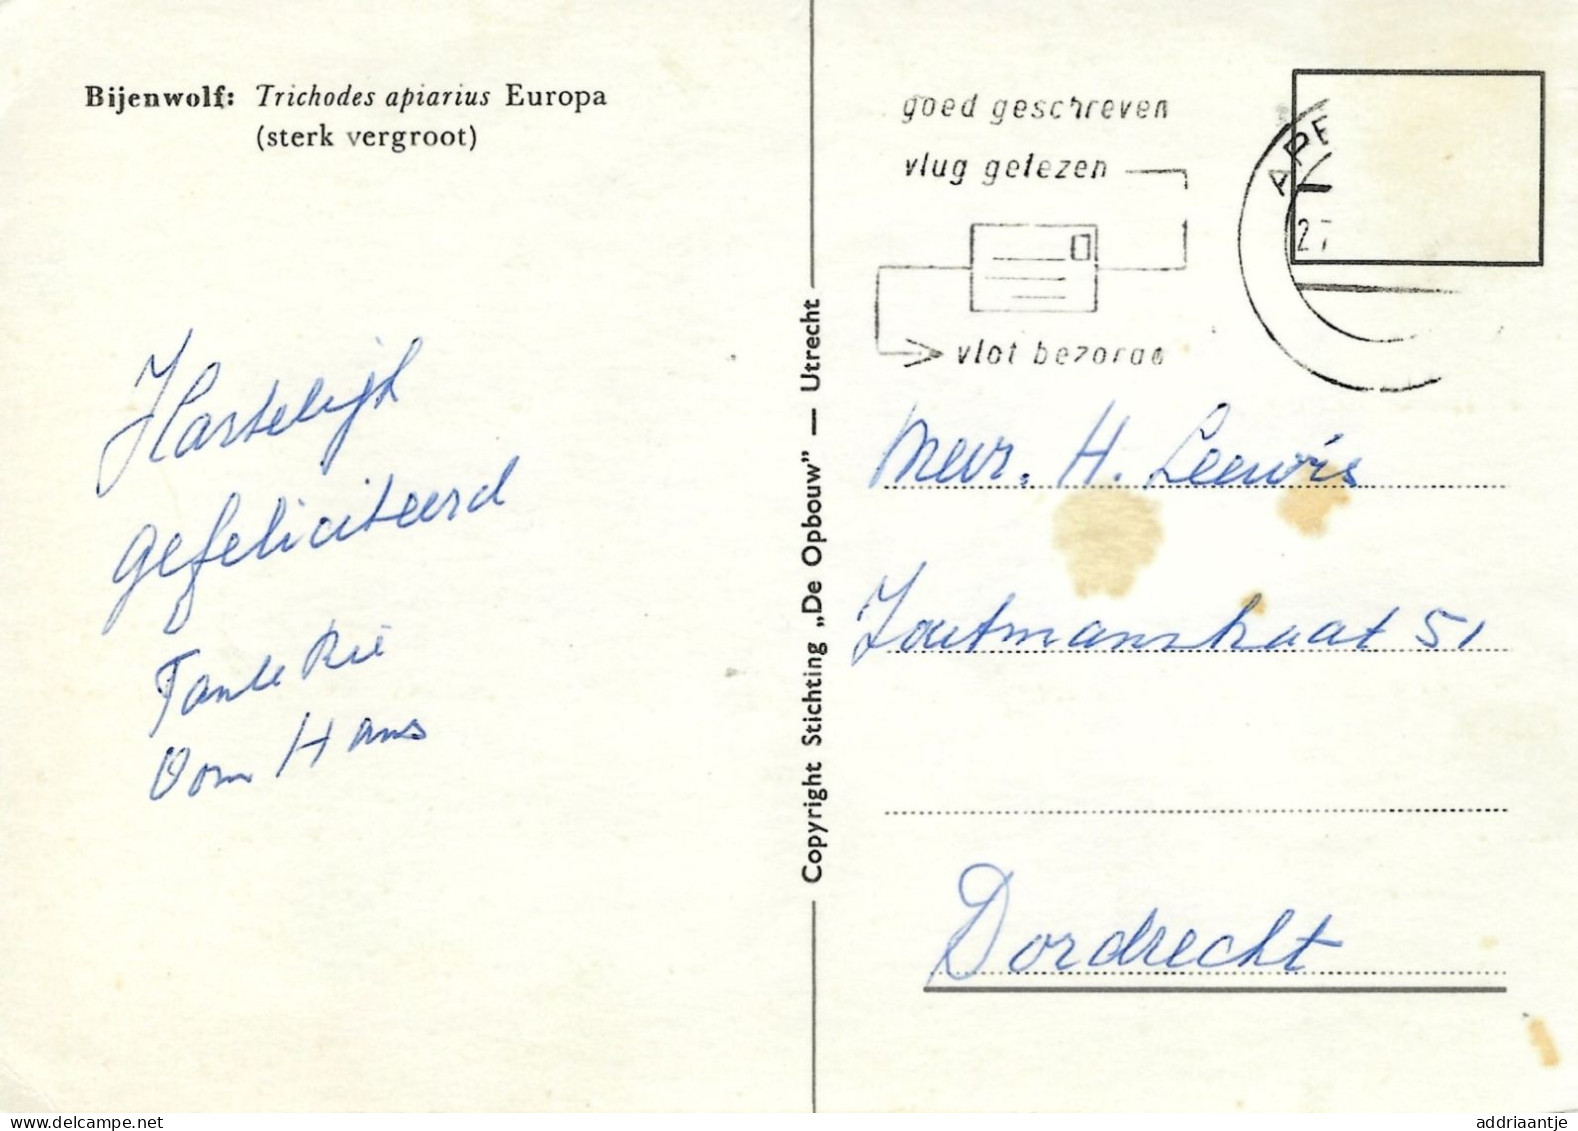 Bijenwolf: Trichodes apiarius Europa
(sterk vergroot)
Hartelijk
gefeliciteerd
Tante Rie
Oom Hans
Copyright Stichting „De Opbouw” — Utrecht
goed geschreven
vlug gelezen
vlot bezorgd
APE
27
Mevr. H. Leewis
Zoutmanstraat 51
Dordrecht
https://www.delcampe.net
addriaantje